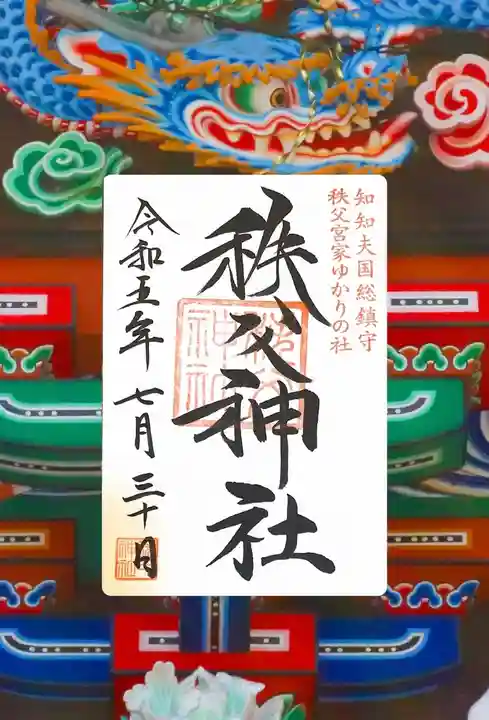 知知夫国総鎮守
秩父宮家ゆかりの社
秩父神社
令和五年七月三十日